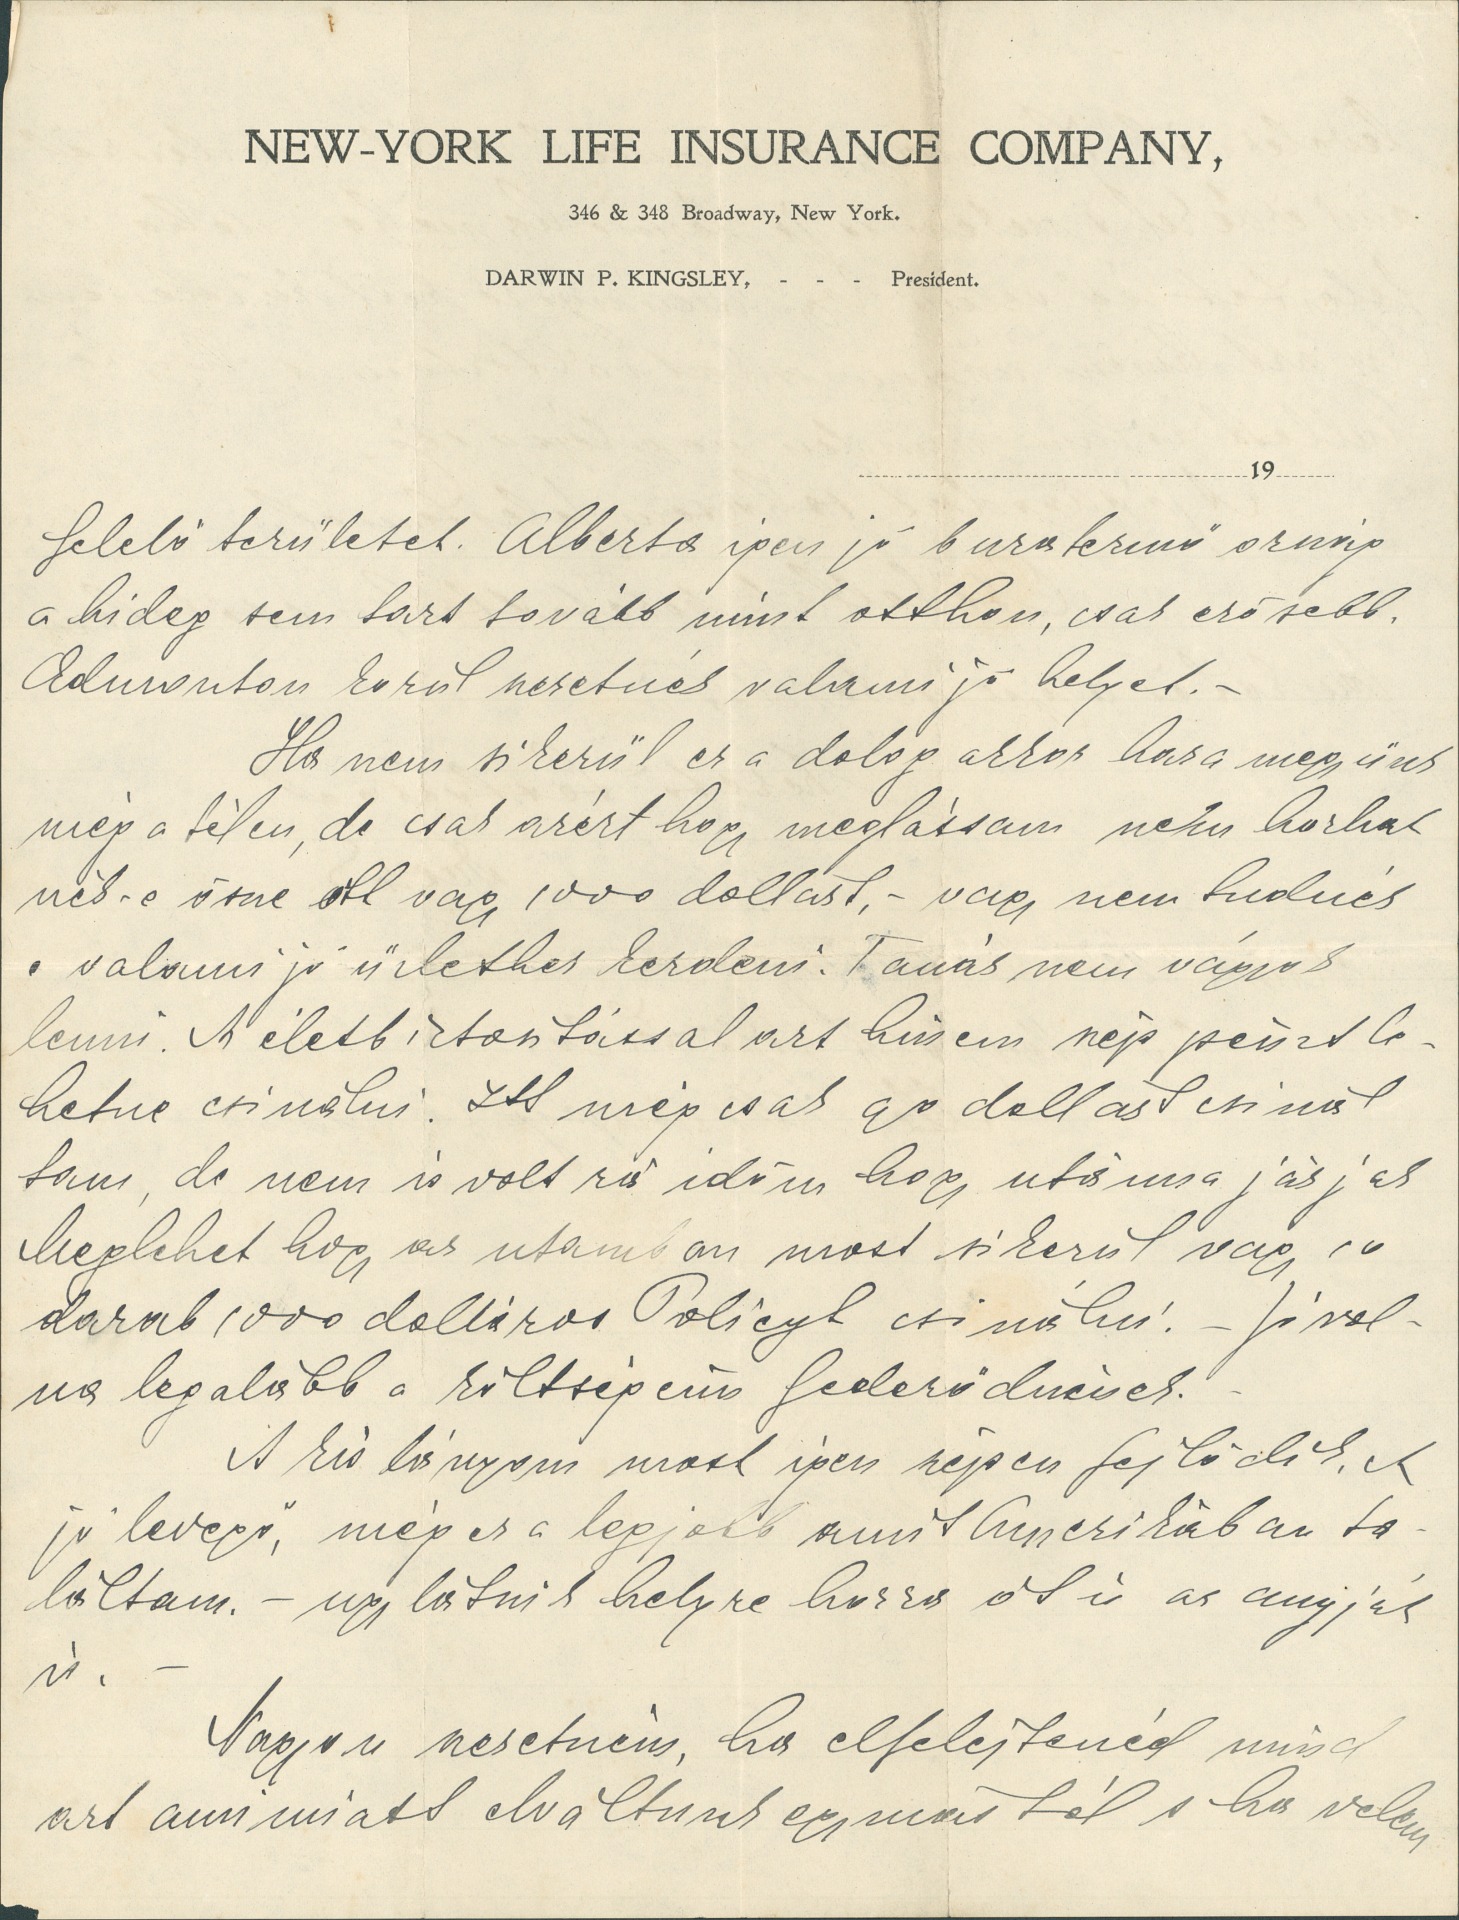 NEW-YORK LIFE INSURANCE COMPANY,
346 & 348 Broadway, New York.
DARWIN P. KINGSLEY, - - - President.
19
felelő területet. Alberta ipen jó buzatermő orszáp
a hideg sem tart tovább mint otthon, csak erősebb.
Edmonton körül szeretnék valami jó helyet. -
Ha nem sikerül ez a dolog akkor haza megyünk
még a télen, de csak azért hogy meglássam nem hozhat
nék-e össze ott vagy 1000 dollárt, - vagy nem tudnék
e valami jó üzlethez kezdeni. Tanár nem vágyok
lenni. A életbiztositással azt hiszem szép pénzt le-
hetne csinálni. Itt még csak 90 dollárt csinál
tam, de nem is volt rá időm hogy utánna járjak
Meglehet hogy az utamban most sikerül vagy 10
darab 1000 dolláros Policyt csinálni. - Jó vol-
na legalább a költségeim fedeződnének. -
A kis lányom most ipen szépen fejlődik. A
jó levegő, még ez a legjobb amit Amerikában ta-
láltam. - ugy látszik helyre hozza őt is az anyját
is. -
Nagyon szeretném, ha elfelejtenéd mind
azt ami miatt elváltunk egymástól s ha velem